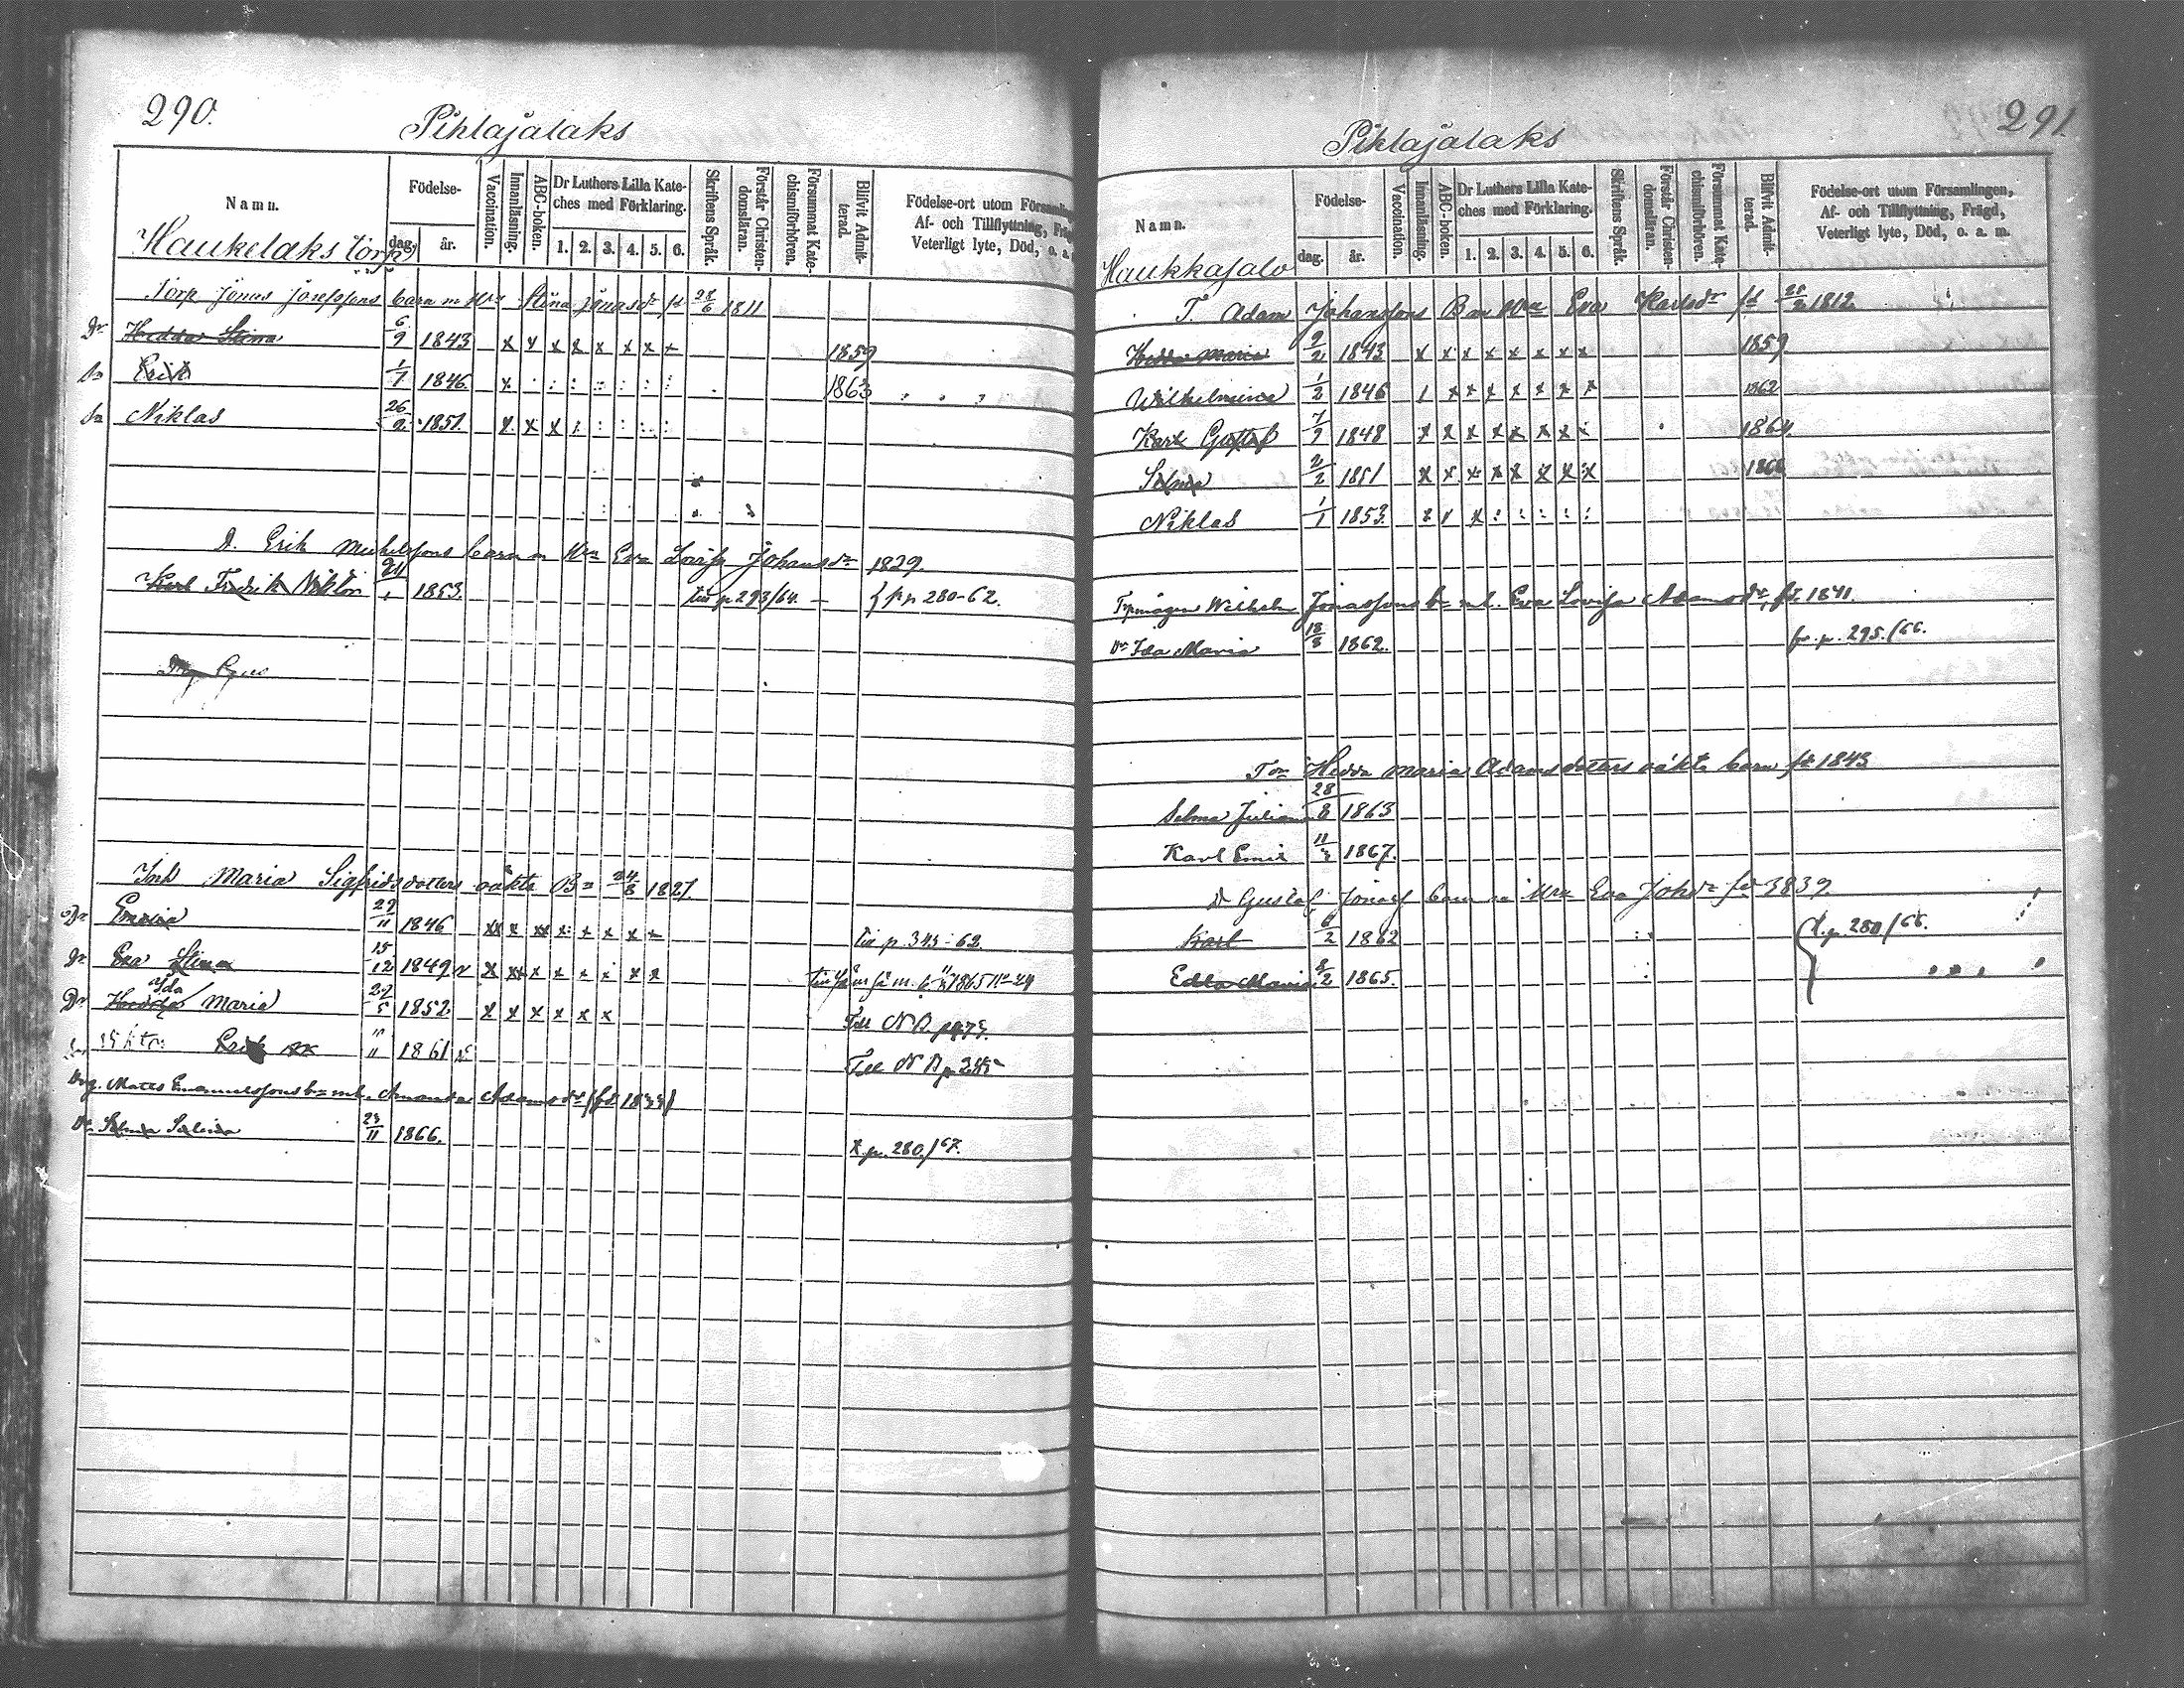 290.
Pihlajalaks
Namn.
Födelse-
dag.
år.
Vaccination.
Innanläsning.
ABC-boken.
Dr Luthers Lilla Kate-
ches med Förklaring.
1. 2. 3. 4. 5. 6.
Skriftens Språk.
Förstår Christen-
domsläran.
Försummat Kate-
chismiförhören.
Blifvit Admit-
terad.
Födelse-ort utom Församlin
Af- och Tillflyttning, Fräg
Veterligt lyte, Död, o. a.
Haukelaks torp
Torp Jonas Josefssons barn m Hru Stina Jonasdr fd 28/6 1811
Dr Hedda Stina 6/9 1843 x x x x x x x x 1859
Sn Erik 1/1 1846 x 1863
Sn Niklas 26/2 1851 x x x
D. Erik Michelssons barn m Hru Eva Lovisa Johansdr 1829.
Karl Fredrik Viktor 1853. till p 293/64. fr p 280-62.
Inh Maria Sigfridsdotters oäkta Bn 24/8 1827.
Dr 29/11 1846 till p. 343-62.
Dr Eva Stina 15/12 1849
Dr Hedda Ida Maria 29/5 1852 x x x x x x
Till N B
Erik 1861
Till N B
Drg. Matts Emanuelssons bn m h. Amanda Adamsdr
Dr. Selma Selina 23/11 1866. x p. 280./67.
291.
Pihlajalaks
Namn.
Födelse-
dag.
år.
Vaccination.
Innanläsning.
ABC-boken.
Dr Luthers Lilla Kate-
ches med Förklaring.
1. 2. 3. 4. 5. 6.
Skriftens Språk.
Förstår Christen-
domsläran.
Försummat Kate-
chismiförhören.
Blifvit Admit-
terad.
Födelse-ort utom Församlingen,
Af- och Tillflyttning, Frägd,
Veterligt lyte, Död, o. a. m.
Haukkasalo
T. Adam Johanssons Bn m Hru Eva Karlsdr fd 1812
Hedda Maria 9/2 1843 x x x x x x x x 1859
Wilhelmina 1/2 1846 1 x x x x x x x 1862
Karl Gustaf 7/9 1848 x x x x x x x 1864.
Selma 2/2 1851 x x x x x x x x 1866
Niklas 1/1 1853
Wilhelm Jonassons bn m h. Eva Lovisa Adamsdr, fd. 1841.
Dr Ida Maria 18/8 1862. fr. p. 295./66.
Hedda Maria Adamsdotters oäkta barn fd 1843
Selma Juliana 28/8 1863
Karl Emil 1867.
D Gustaf Jonass barn m Hru Eva Johdr fd 1839.
Karl 6/2 1862 p. 280/66.
Edla Maria 1865.